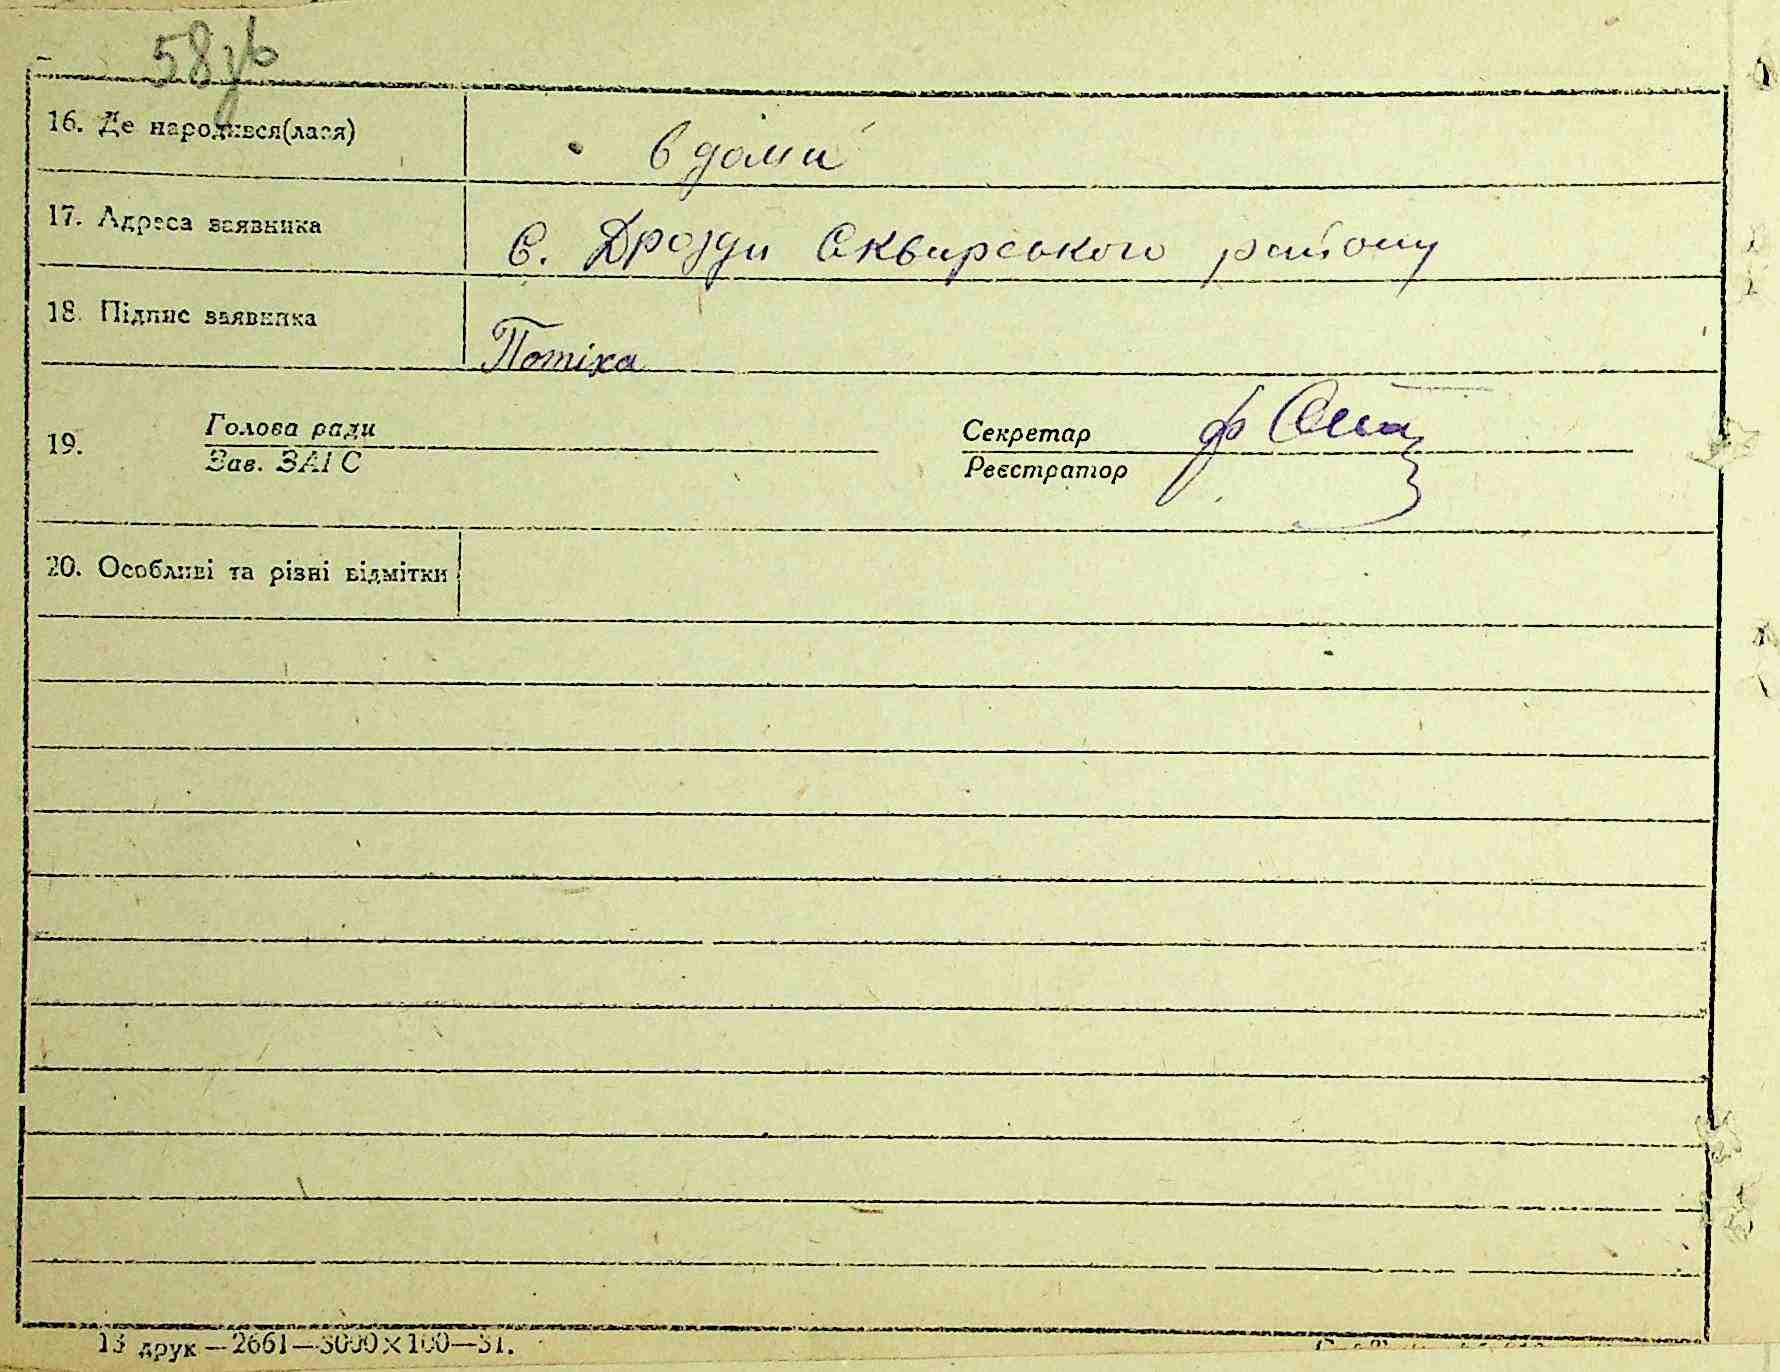 58зв
16. Де народився(лася) в доми
17. Адреса заявника С. Дрозди Сквирського району
18. Підпис заявника Потіха
19. Голова ради Секретар
Зав. ЗАГС Реєстратор
20. Особливі та різні відмітки
13 друк — 2661—3000×100—51.